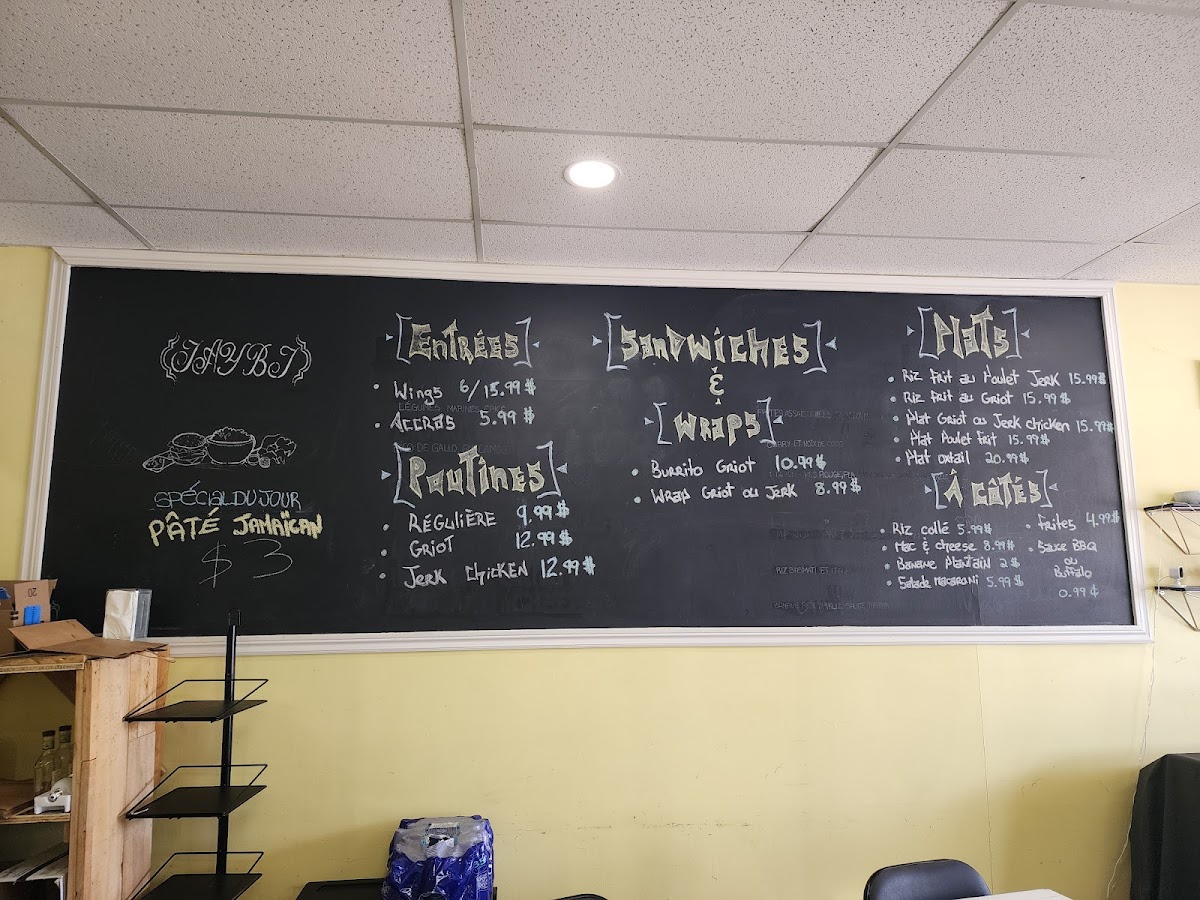 JAYBJ
SPÉCIAL DU JOUR
PÂTÉ JAMAÏCAN
$ 3
Entrées
Wings 6/15.99 $
Accras 5.99 $
Poutines
Régulière 9.99 $
Griot 12.99 $
Jerk chicken 12.99 $
Sandwiches
&
Wraps
Burrito Griot 10.99 $
Wrap Griot ou Jerk 8.99 $
Plats
Riz frit au Poulet Jerk 15.99 $
Riz frit au Griot 15.99 $
Plat Griot ou Jerk chicken 15.99 $
Plat Poulet frit 15.99 $
Plat oxtail 20.99 $
À côtés
Riz collé 5.99 $
Mac & cheese 8.99 $
Banane Plantain 2 $
Salade macaroni 5.99 $
frites 4.99 $
Sauce BBQ
ou
Buffalo
0.99 ¢
20